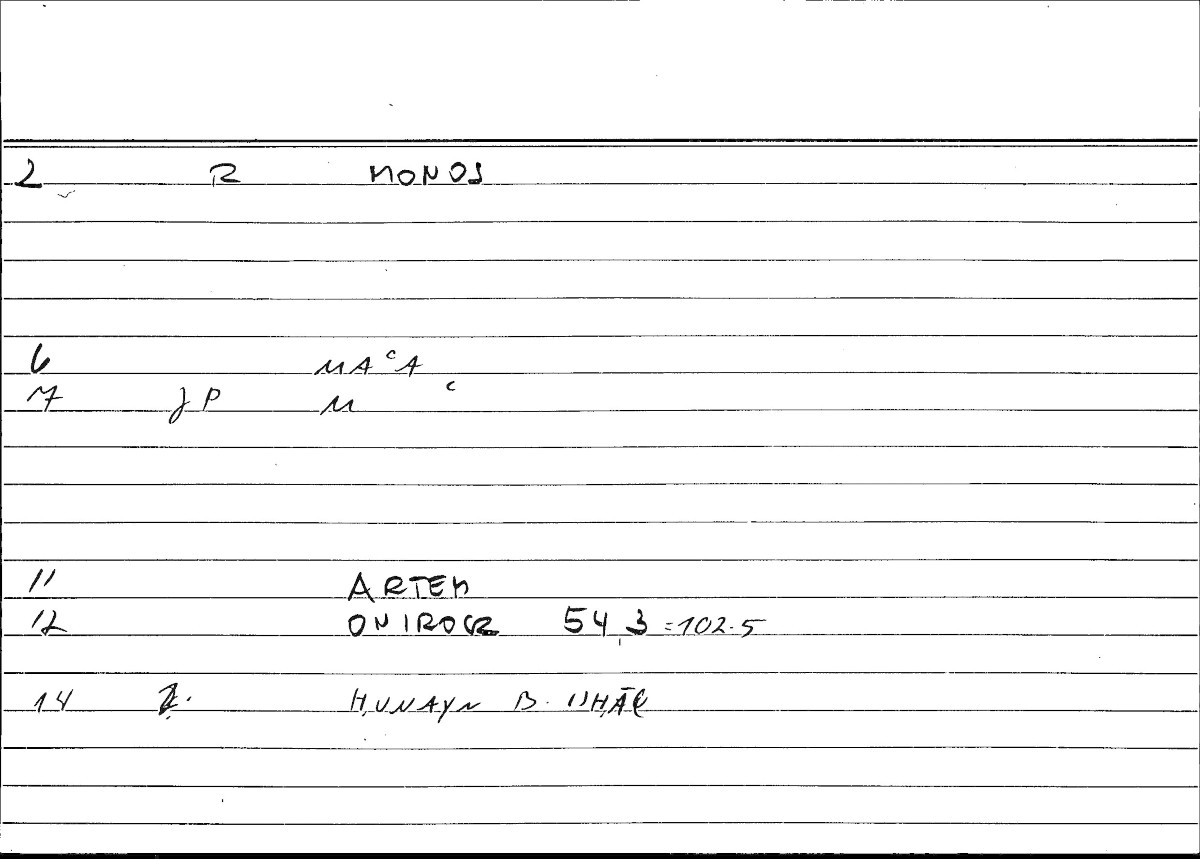 2 R MONOS
6 MAᶜA
7 JP M ᶜ
11 ARTEM
12 ONIROCR 54,3 =102.5
14 ḤUNAYN B. ISḤĀḲ